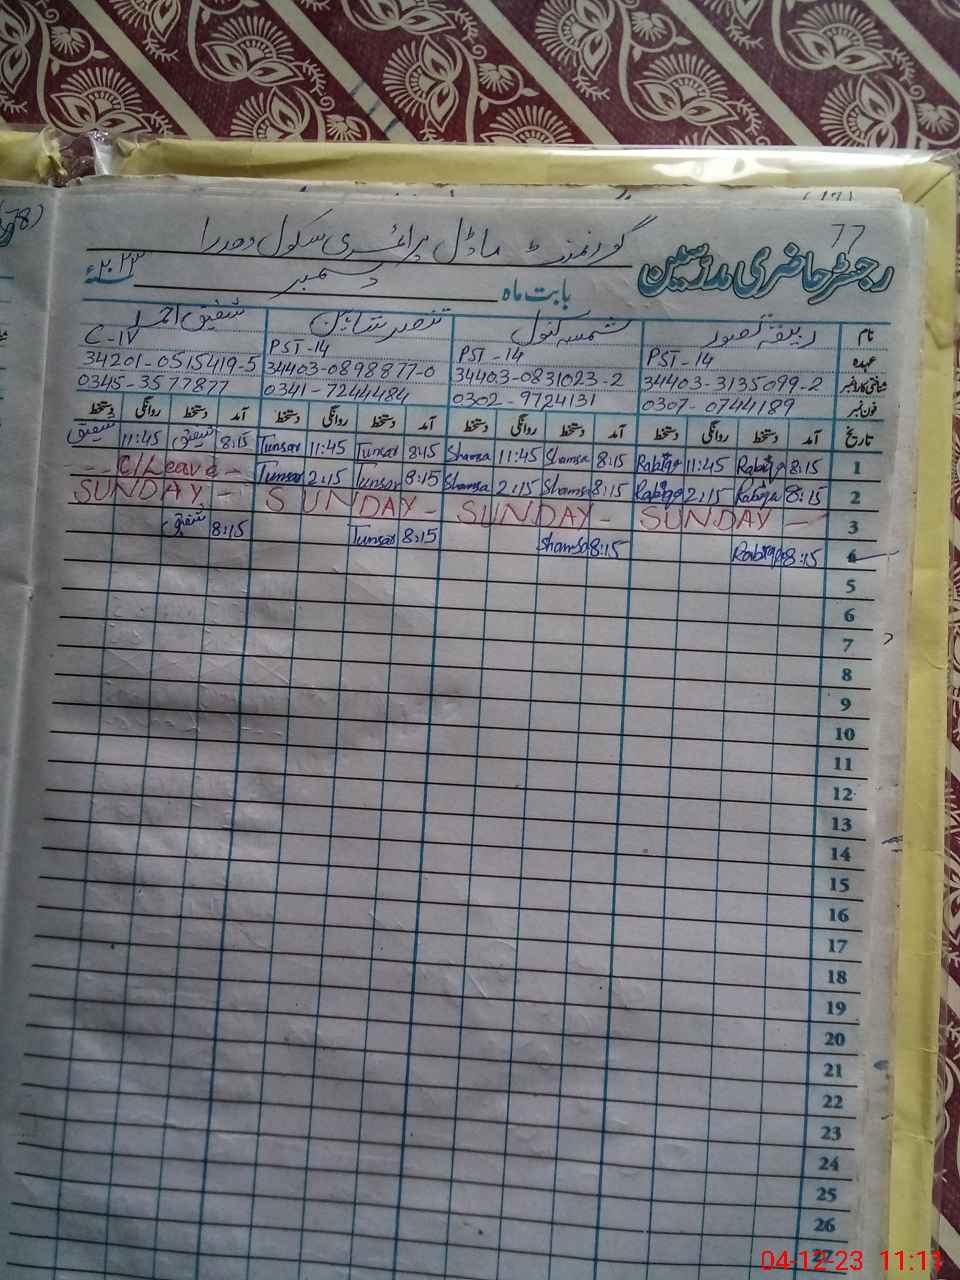 77
گورنمنٹ ماڈل پرائمری سکول
رجسٹر حاضری مدرسین
بابت ماہ دسمبر ۲۰۲۳ء
نام شمسہ کنول تنصر شاہین شفیق احمد
عہدہ PST-14 PST-14 PST-14 C-IV
شناختی کارڈ نمبر 34403-3135099-2 34403-0831023-2 34403-0898877-0 34201-0515419-5
فون نمبر 0307-0744189 0302-9724131 0341-7244484 0345-3577877
تاریخ آمد دستخط روانگی دستخط آمد دستخط روانگی دستخط آمد دستخط روانگی دستخط آمد دستخط روانگی دستخط
1 8:15 Rabiqa 11:45 Rabiqa 8:15 Shamsa 11:45 Shamsa 8:15 Tunsar 11:45 Tunsar 8:15 شفیق 11:45 شفیق
2 8:15 Rabiqa 2:15 Rabiqa 8:15 Shamsa 2:15 Shamsa 8:15 Tunsar 2:15 Tunsar -- C/Leave -
3 SUNDAY - SUNDAY - SUNDAY - SUNDAY -
4 8:15 Rabiqa 8:15 Shamsa 8:15 Tunsar 8:15 شفیق
5
6
7
8
9
10
11
12
13
14
15
16
17
18
19
20
21
22
23
24
25
26
27
04-12-23 11:11